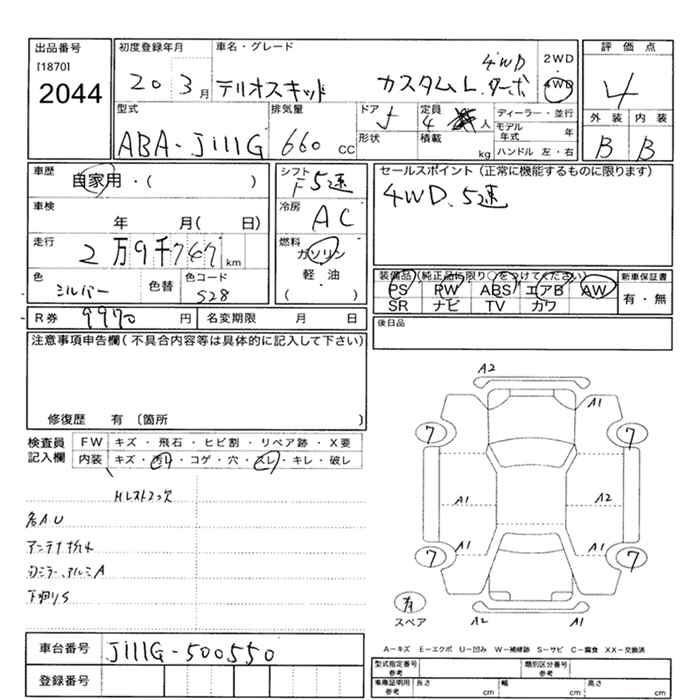 出品番号
[1870]
2044
初度登録年月
20 3月
車名・グレード
テリオスキッド カスタムL.ターボ 4WD
2WD
4WD
評価点
4
外装 内装
B B
型式
ABA-J111G
排気量
660 CC
ドア
5
形状
定員
4 人
積載
kg
ディーラー・並行
モデル年式 年
ハンドル 左・右
車歴
自家用・( )
車検
年 月( 日)
走行
2万9千747 km
色
シルバー
色替
色コード
S28
シフト
F5速
冷房
AC
燃料
ガソリン
軽・油
( )
セールスポイント(正常に機能するものに限ります)
4WD、5速
装備品(純正品に限り○をつけてください)
PS PW ABS エアB AW
SR ナビ TV カワ
新車保証書
有・無
R券 9970 円
名変期限 月 日
後日品
注意事項申告欄(不具合内容等は具体的に記入して下さい)
修復歴 有 〔箇所 〕
検査員
記入欄
FW キズ・飛石・ヒビ割・リペア跡・X要
内装 キズ・汚れ・コゲ・穴・スレ・キレ・破レ
Hレストフック欠
各AU
アンテナ
ミラー、アルミA
下廻りS
A2
A1
7 7
A1 A2
A1 A1
7 7
有
スペア
A2 A1
A-キズ E-エクボ U-凹み W-補修跡 S-サビ C-腐食 XX-交換済
車台番号
J111G-500550
登録番号
型式指定番号
参考
類別区分番号
参考
車庫証明用
参考
長さ cm
幅 cm
高さ cm